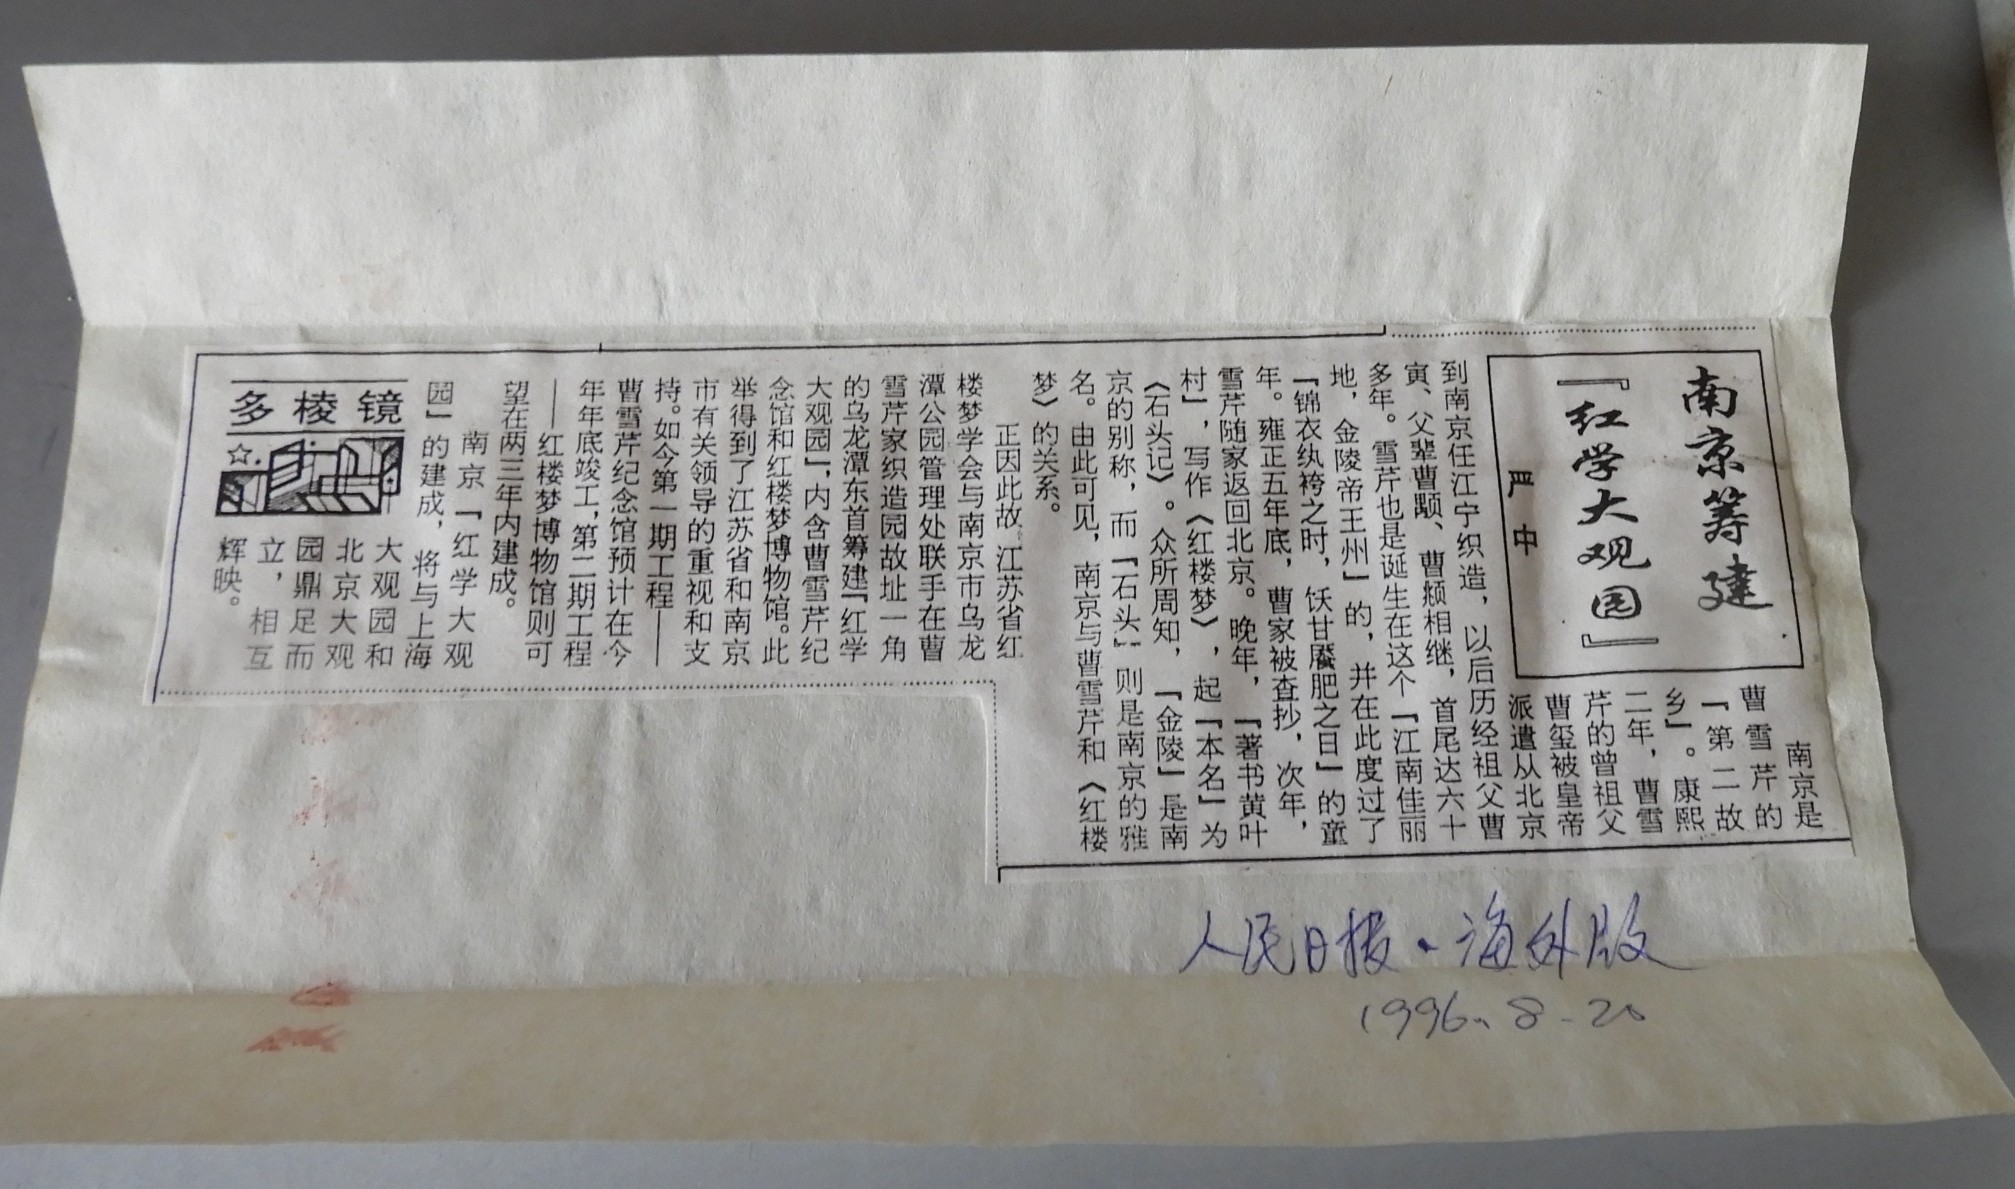 南京筹建
『红学大观园』
严中
南京是
曹雪芹的
『第二故
乡』。康熙
二年，曹雪
芹的曾祖父
曹玺被皇帝
派遣从北京
到南京任江宁织造，以后历经祖父曹
寅、父辈曹颙、曹頫相继，首尾达六十
多年。雪芹也是诞生在这个『江南佳丽
地，金陵帝王州』的，并在此度过了
『锦衣纨袴之时，饫甘餍肥之日』的童
年。雍正五年底，曹家被查抄，次年，
雪芹随家返回北京。晚年，『著书黄叶
村』，写作《红楼梦》，起『本名』为
《石头记》。众所周知，『金陵』是南
京的别称，而『石头』则是南京的雅
名。由此可见，南京与曹雪芹和《红楼
梦》的关系。
正因此故，江苏省红
楼梦学会与南京市乌龙
潭公园管理处联手在曹
雪芹家织造园故址一角
的乌龙潭东首筹建『红学
大观园』，内含曹雪芹纪
念馆和红楼梦博物馆。此
举得到了江苏省和南京
市有关领导的重视和支
持。如今第一期工程——
曹雪芹纪念馆预计在今
年年底竣工，第二期工程
——红楼梦博物馆则可
望在两三年内建成。
南京『红学大观
园』的建成，将与上海
大观园和
北京大观
园鼎足而
立，相互
辉映。
多棱镜
人民日报·海外版
1996.8.20